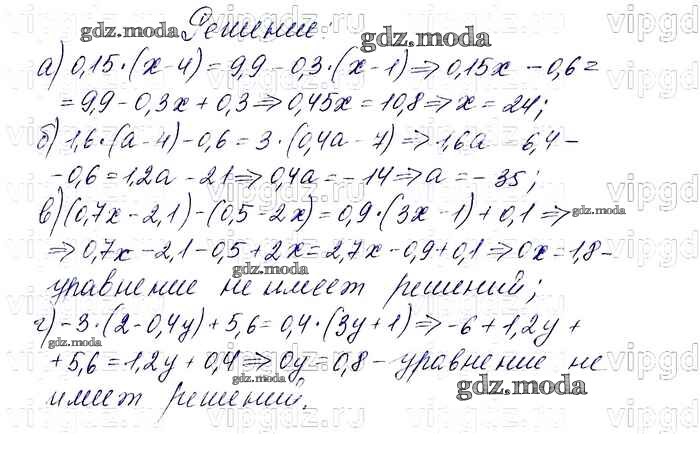 Решение:
а) 0,15·(x-4) = 9,9 - 0,3·(x-1) ⇒ 0,15x - 0,6 =
= 9,9 - 0,3x + 0,3 ⇒ 0,45x = 10,8 ⇒ x = 24;
б) 1,6·(a-4) - 0,6 = 3·(0,4a - 7) ⇒ 1,6a - 6,4 -
- 0,6 = 1,2a - 21 ⇒ 0,4a = -14 ⇒ a = -35;
в) (0,7x - 2,1) - (0,5 - 2x) = 0,9·(3x - 1) + 0,1 ⇒
⇒ 0,7x - 2,1 - 0,5 + 2x = 2,7x - 0,9 + 0,1 ⇒ 0x = 1,8 -
уравнение не имеет решений;
г) -3·(2 - 0,4y) + 5,6 = 0,4·(3y + 1) ⇒ -6 + 1,2y +
+ 5,6 = 1,2y + 0,4 ⇒ 0y = 0,8 - уравнение не
имеет решений.
gdz.moda
gdz.moda
gdz.moda
gdz.moda
gdz.moda
gdz.moda
gdz.moda
gdz.moda
vipgdz.ru